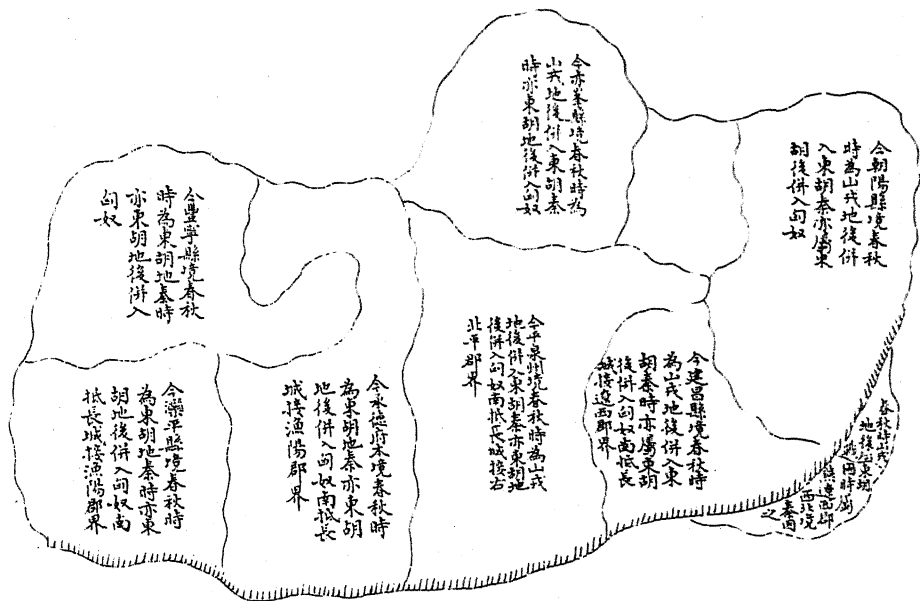 今朝陽縣境春秋
時為山戎地後併
入東胡秦亦屬東
胡後併入匈奴
今赤峯縣境春秋時為
山戎地後併入東胡秦
時亦東胡地後併入匈奴
今豐寧縣境春秋
時為東胡地秦時
亦東胡地後併入
匈奴
春秋時山戎
地後屬東胡
戰國時屬
燕遼西郡
西北境
秦因
之
今建昌縣境春秋時
為山戎地後併入東
胡秦時亦屬東胡
後併入匈奴南抵長
城接遼西郡界
今平泉州境春秋時為山戎
地後併入東胡秦亦東胡地
後併入匈奴南抵長城接右
北平郡界
今承德府本境春秋時
為東胡地秦亦東胡
地後併入匈奴南抵長
城接漁陽郡界
今灤平縣境春秋時
為東胡地秦時亦東
胡地後併入匈奴南
抵長城接漁陽郡界